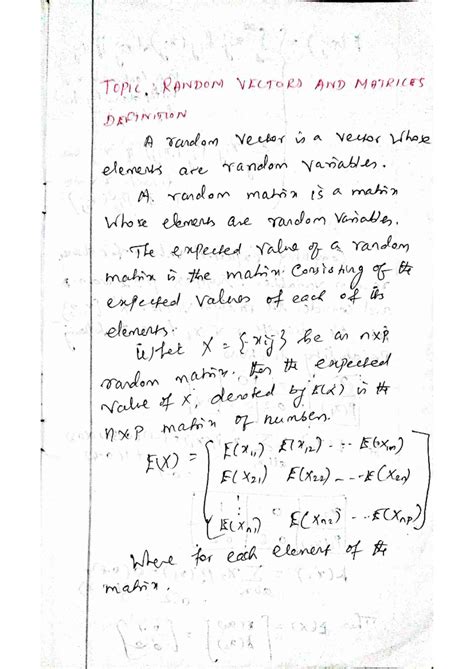 TOPIC. RANDOM VECTORS AND MATRICES
DEFINITION
A random vector is a vector whose
elements are random variables.
A. random matrix is a matrix
whose elements are random variables.
The expected value of a random
matrix is the matrix consisting of the
expected values of each of its
elements.
Let X = {xij} be an nxp
random matrix. the expected
value of X, denoted by E(X) is the
nxp matrix of numbers.
E(X) = [ E(x11) E(x12) --- E(x1n)
E(x21) E(x22) --- E(x2n)
⋮
E(xn1) E(xn2) --- E(xnp) ]
Where for each element of the
matrix.